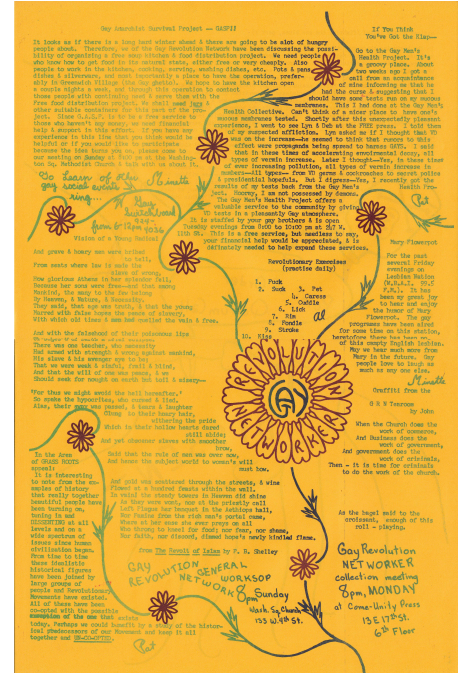 Gay Anarchist Survival Project -- GASP!!
It looks as if a long beat winter ahead & there are going to be alot of hungry
people about. Therefore, we of the Gay Revolution Network have been discussing the possi-
bility of organizing a free away kitchen & food distribution project. We need people
who know how to get food in its natural state, either free or very cheaply. Also
people to work in the kitchen, cooking, serving, washing dishes, etc. Pots & pans,
dishes & silverware, and most importantly a place to have the operation, prefer-
ably in Greenwich Village (the Gay ghetto). We hope to have the kitchen open
a couple nights a week, and through this operation to contact
those people with continuing need & serve them with the
free food distribution project. We shall need jugs &
other suitable containers for this part of the pro-
ject. Since G.A.S.P. is to be a free service to
those who haven't any money, we need financial
help & support in the effort. If you have any
experience in this line that you think would be
helpful or if you would like to participate
because the idea turns you on, please come to
our meeting on Sunday at 8:00 pm at the Washing-
ton Sq. Methodist Church & talk with us about it.
To Learn of other
gay social events
ring...
Minette
Gay
Switchboard
924-
4036
from 6-12pm
Vision of a Young Radical
And grave & hoary men were bribed
to tell,
From seats where law is made the
slave of wrong,
How glorious Athens in her splendor fell,
Because her sons were free--and that among
Mankind, the many to the few belong
By Heaven, & Nature, & Necessity.
They said, that age was truth, & that the young
Marred with false hopes the peace of slavery,
With which old times & men had quelled the vain & free.
And with the falsehood of their poisonous lips
There was one teacher, who necessity
Had armed with strength & wrong against mankind,
His slave & his avenger aye to be;
That we were weak & sinful, frail & blind,
And that the will of one was peace, & we
Should seek for nought on earth but toil & misery--
"For thus we might avoid the hell hereafter."
So spake the hypocrites, who cursed & lied,
Alas, their sway was passed, & tears & laughter
Clung to their hoary hair,
withering the pride
Which in their hollow hearts dared
still abide;
And yet obscener slaves with smoother
brow,
Said that the rule of men was over now,
And hence the subject world to women's will
must bow.
And gold was scattered through the streets, & wine
Flowed at a hundred feasts within the wall.
In vain! the steady towers in Heaven did shine
As they were wont, nor at the priestly call
Left Plague her banquet in the Aethiops hall,
Nor Famine from the rich man's portal came,
Where at her ease she ever preys on all
Who throng to kneel for food; nor fear, nor shame,
Nor faith, nor discord, dimmed hope's newly kindled flame.
from The Revolt of Islam by P. B. Shelley
In the Area
of GRASS ROOTS
appeal:
It is interesting
to note from the ex-
amples of history
that really together
beautiful people have
been turning on,
tuning in and
DISSENTING at all
levels and on a
wide spectrum of
issues since human
civilization began.
From time to time
these idealistic
historical figures
have been joined by
large groups of
people and Revolutionary
Movements have existed.
All of these have been
co-opted with the possible
exception of the one that exists
today. Perhaps we could benefit by a study of the histor-
ical predecessors of our Movement and keep it all
together and UN-CO-OPTED.
Pat
GAY
REVOLUTION
NETWORK
GENERAL
WORKSOP
8pm Sunday
Wash. Sq. Church
133 W. 4th St.
If You Think
You've Got the Clap--
Go to the Gay Men's
Health Project. It's
a groovy place. About
two weeks ago I got a
call from an acquaintance
of mine informing me that he
had the curse & suggesting that I
should have some tests run on my mucous
membranes. This I had done at the Gay Men's
Health Collective. Can't think of a nicer place to have one's
mucous membranes tested. Shortly after this unpleasantly pleasant
experience, I went to see Lyn & Deb at the FREE press. I told them
of my suspected affliction. Lyn asked me if I thought that VD
was on the increase--he seemed to think that rumors to this
effect were propaganda being spread to harass GAYS. I said
that in these times of accelerating environmental decay, all
types of vermin increase. Later I thought--Yes, in these times
of ever increasing pollution, all types of vermin increase in
numbers--all types-- from VD germs & cockroaches to secret police
& presidential hopefuls. But I digress--Yes, I recently got the
results of my tests back from the Gay Men's Health Pro-
ject. Hooray, I am not possessed by demons.
Pat
The Gay Men's Health Project offers a
valuable service to the community by giving
VD tests in a pleasantly Gay atmosphere.
It is staffed by your gay brothers & is open
Tuesday evenings from 8:00 to 10:00 pm at 247 W.
11th St. This is a free service, but needless to say,
your financial help would be appreciated, & is
definately needed to help expand these services.
Revolutionary Exercises
(practise daily)
1. Fuck
2. Suck
3. Pet
4. Caress
5. Cuddle
6. Lick
7. Rim
8. Fondle
9. Stroke
10. Kiss
Al
REVOLUTION
GAY
NETWORK
Mary Flowerpot
For the past
several Friday
evenings on
Lesbian Nation
(W.B.A.I. 99.5
F.M.), it has
been my great joy
to hear and enjoy
the humor of Mary
Flowerpot. The gay
programs have been aired
for some time on this station,
heretofore there has been no
of this county English Lesbian.
May we hear much more from
Mary in the future. Gay
people love to laugh as
much as any one else.
Minette
Graffiti from the
G R N Tearoom
by John
When the Church does the
work of commerce,
And Business does the
work of government,
And government does the
work of criminals,
Then - it is time for criminals
to do the work of the church.
As the bagel said to the
croissant, enough of this
roll - playing.
Gay Revolution
NETWORKER
collection meeting
8pm, MONDAY
at Come-Unity Press
13 E 17th St.
6th Floor